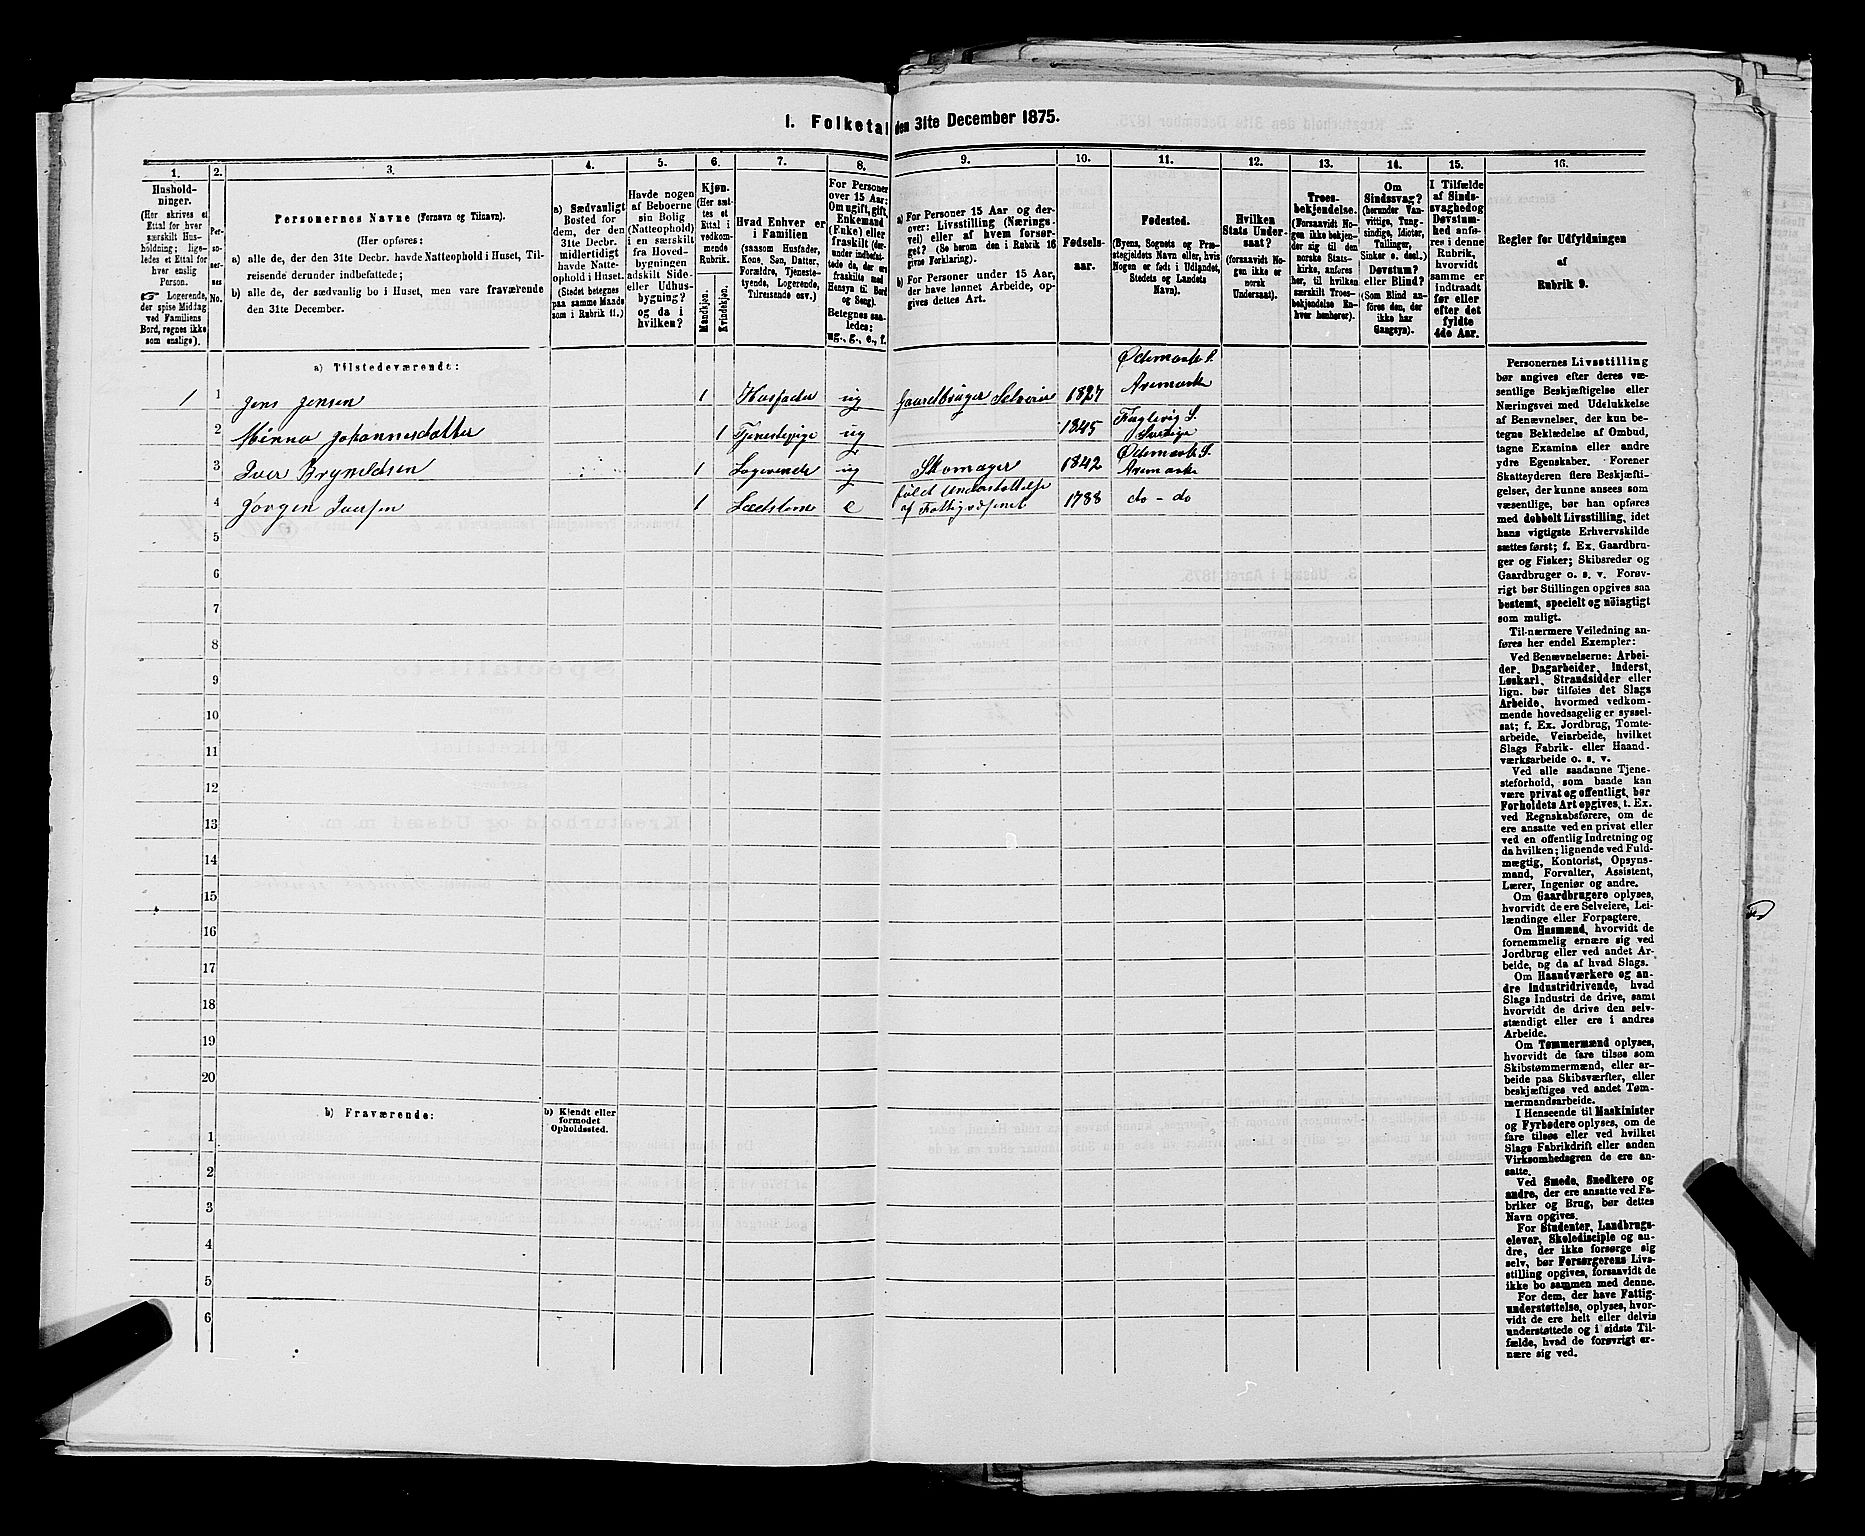 1. Folketal den 31te December 1875.
1. 2. 3. 4. 5. 6. 7. 8. 9. 10. 11. 12. 13. 14. 15. 16.
Hushold-
ninger.
(Her skrives et
Ettal for hver
særskilt Hus-
holdning; lige-
ledes et Ettal for
hver enslig
Person.
☞ Logerende,
der spise Middag
ved Familiens
Bord, regnes ikke
som enslige).
Per-
so-
ner-
nes
No.
Personernes Navne (Fornavn og Tilnavn).
(Her opføres:
a) alle de, der den 31te Decbr. havde Natteophold i Huset, Til-
reisende derunder indbefattede;
b) alle de, der sædvanlig bo i Huset, men vare fraværende
den 31te December.
a) Sædvanligt
Bosted for
dem, der den
31te Decbr.
midlertidigt
havde Natte-
ophold i Huset.
(Stedet betegnes
paa samme Maade
som i Rubrik 11.)
Havde nogen
af Beboerne
sin Bolig
(Natteophold)
i en særskilt
fra Hoved-
bygningen
adskilt Side-
eller Udhus-
bygning?
og da i
hvilken?
Kjøn.
(Her sæt-
tes et
Ettal i
vedkom-
mende
Rubrik.
Mandkjøn.
Kvindekjøn.
Hvad Enhver er
i Familien
(saasom Husfader,
Kone, Søn, Datter,
Forældre, Tjeneste-
tyende, Logerende,
Tilreisende osv.)
For Personer
over 15 Aar:
Om ugift, gift,
Enkemand
(Enke) eller
fraskilt (der-
under indbefat-
tede de, der ere
fraskilte med
Hensyn til Bord
og Seng).
Betegnes saa-
ledes:
ug., g., e., f.
a) For Personer 15 Aar og der-
over: Livsstilling (Nærings-
vei) eller af hvem forsør-
get? (Se herom den i Rubrik 16
givne Forklaring).
b) For Personer under 15 Aar,
der have lønnet Arbeide, op-
gives dettes Art.
Fødsels-
aar.
Fødested.
(Byens, Sognets og Præ-
stegjeldets Navn eller, hvis
Nogen er født i Udlandet,
Stedets og Landets
Navn).
Hvilken
Stats Under-
saat?
(forsaavidt No-
gen ikke er
norsk
Undersaat).
Troes-
bekjendelse.
(Forsaavidt No-
gen ikke bekjen-
der sig til den
norske Stats-
kirke, anføres
her, til hvilken
særskilt Troes-
bekjendelse En-
hver henhører).
Om
Sindssvag?
(herunder Van-
vittige, Tung-
sindige, Idioter,
Tullinger,
Sinker o. desl.)
Døvstum?
eller Blind?
(Som Blind an-
føres den, der
ikke har
Gangsyn).
I Tilfælde
af Sinds-
svaghed og
Døvstum-
hed anfø-
res i denne
Rubrik,
hvorvidt
samme er
indtraadt
før eller
efter det
fyldte
4de Aar.
Regler for Udfyldningen
af
Rubrik 9.
a) Tilstedeværende:
1 1 Jens Jensen 1 Husfader ug Gaardbruger Selveier 1827 Ødemarks S. Aremarke
2 Minna Johannesdatter 1 Tjenestepige ug 1845 S. Sverige
3 Iver Bryneldsen 1 Logerende ug Skomager 1842 Ødemarks S. Aremarke
4 Jørgen Iversen 1 e Understøttelse af Fattigvæsenet 1788 do - do
5
6
7
8
9
10
11
12
13
14
15
16
17
18
19
20
b) Fraværende:
b) Kjendt eller
formodet
Opholdssted.
1
2
3
4
5
6
Personernes Livsstilling
bør angives efter deres væ-
sentlige Beskjæftigelse eller
Næringsvei med Udelukkelse
af Benævnelser, der kun be-
tegne Beklædelse af Ombud,
tagne Examina eller andre
ydre Egenskaber. Forener
Skatteyderen flere Beskjæfti-
gelser, der kunne ansees som
væsentlige, bør han opføres
med dobbelt Livsstilling, idet
hans vigtigste Erhvervskilde
sættes først; f. Ex. Gaardbru-
ger og Fisker; Skibsreder og
Gaardbruger o. s. v. Forøv-
rigt bør Stillingen opgives saa
bestemt, specielt og nöiagtigt
som muligt.
Til nærmere Veiledning an-
føres her endel Exempler:
Ved Benævnelserne: Arbei-
der, Dagarbeider, Inderst,
Løskarl, Strandsidder eller
lign. bør tilføies det Slags
Arbeide, hvormed vedkom-
mende hovedsagelig er syssel-
sat; f. Ex. Jordbrug, Tomte-
arbeide, Veiarbeide, hvilket
Slags Fabrik- eller Haand-
værksarbeide o. s. v.
Ved alle saadanne Tjene-
steforhold, som baade kan
være privat og offentligt, bør
Forholdets Art opgives, t. Ex.
ved Regnskabsførere, om de
ere ansatte ved en privat eller
ved en offentlig Indretning og
da hvilken; lignende ved Fuld-
mægtig, Kontorist, Opsyns-
mand, Forvalter, Assistent,
Lærer, Ingeniør og andre.
Om Gaardbrugere oplyses,
hvorvidt de ere Selveiere, Lei-
lændinge eller Forpagtere.
Om Husmænd, hvorvidt de
fornemmelig ernære sig ved
Jordbrug eller ved andet Ar-
beide, og da af hvad Slags.
Om Haandværkere og an-
dre Industridrivende, hvad
Slags Industri de drive, samt
hvorvidt de drive den selv-
stændigt eller ere i andres
Arbeide.
Om Tømmermænd oplyses,
hvorvidt de fare tilsøs som
Skibstømmermænd, eller ar-
beide paa Skibsværfter, eller
beskjæftiges ved andet Tøm-
mermandsarbeide.
I Henseende til Maskinister
og Fyrbødere oplyses, om de
fare tilsøs eller ved hvilket
Slags Fabrikdrift eller anden
Virksomhedsgren de ere an-
satte.
Ved Smede, Snedkere og
andre, der ere ansatte ved Fa-
briker og Brug, bør dettes
Navn opgives.
For Studenter, Landbrugs-
elever, Skoledisciple og an-
dre, der ikke forsørge sig
selv, bør Forsørgerens Livs-
stilling opgives, forsaavidt de
ikke bo sammen med denne.
For dem, der have Fattig-
understøttelse, oplyses, hvor-
vidt de ere helt eller delvis
understøttede og i sidste Til-
fælde, hvad de forøvrigt er-
nære sig ved.